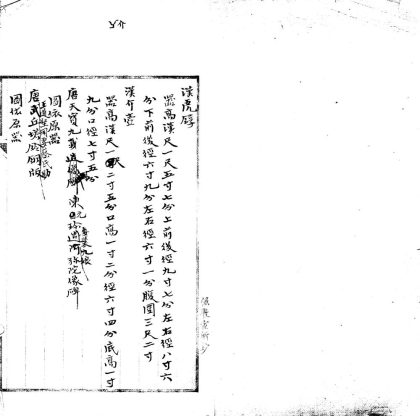 漢虎錞
器高漢尺一尺五寸七分上前後徑九寸七分左右徑八寸六
分下前後徑六寸九分左右徑六寸一分腹圍三尺二寸
漢介壺
器高漢尺一尺二寸五分口高一寸二分徑六寸四分底高一寸
九分口徑七寸五分
唐天寶九載造像碑 陳 造 像碑
圖依原器
唐武丘 銅版
圖依原器